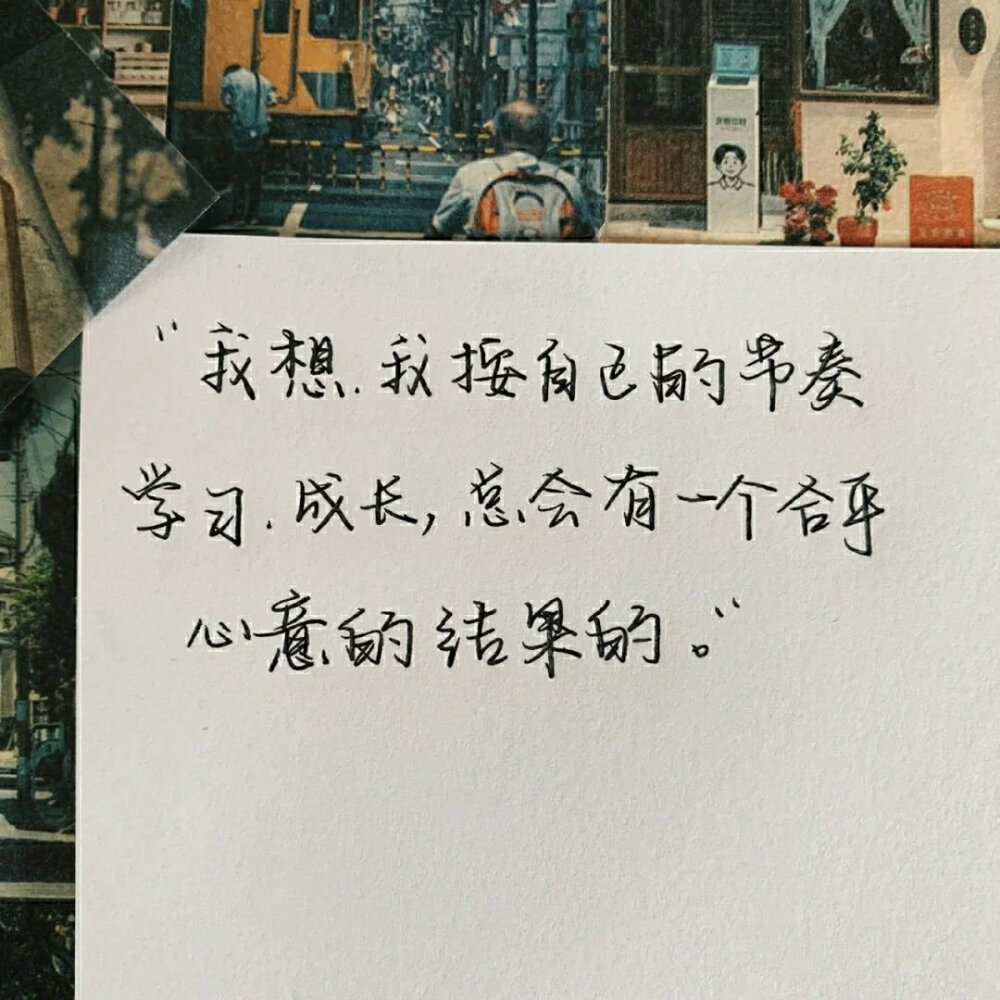 “我想.我按自己的节奏
学习.成长,总会有一个合乎
心意的结果的。”